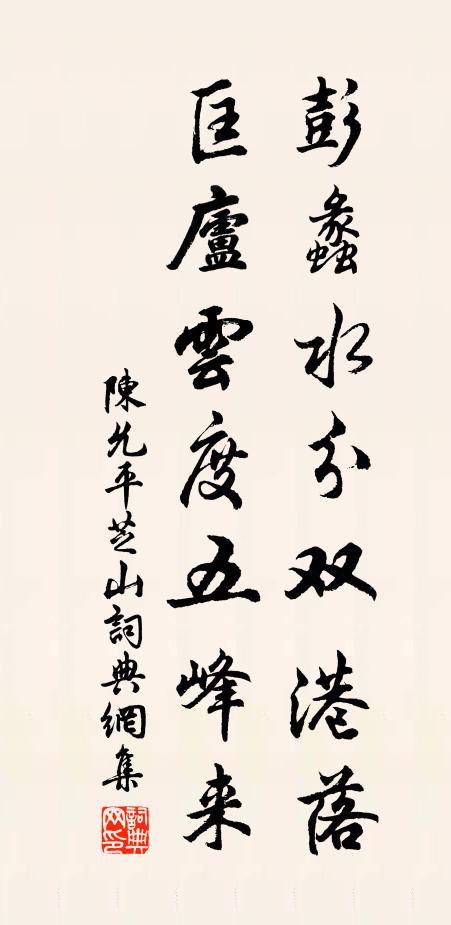 彭蠡水分双港落
匡廬雲度五峰来
陳允平芝山詞典網集
詞典网印